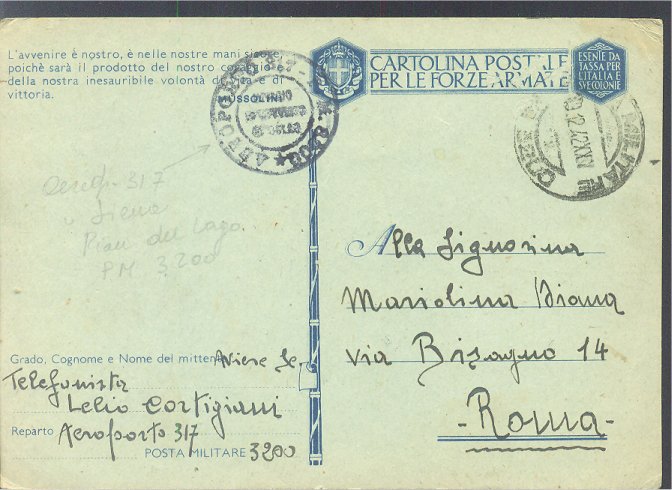 L'avvenire è nostro, è nelle nostre mani
poichè sarà il prodotto del nostro
della nostra inesauribile volontà di vita e di
vittoria.
MUSSOLINI
CARTOLINA POSTALE
PER LE FORZE ARMATE
ESENTE DA
TASSA PER
L'ITALIA E
SVE COLONIE
AEROPORTO 317
3200
POSTA MILITARE
317
Siena
Pian del Lago
PM 3200
Alla Signorina
Mariolina Diana
Via Bisagno 14
- Roma -
Grado, Cognome e Nome del mittente Aviere
Telefonista
Lelio Cortigiani
Reparto Aeroporto 317
POSTA MILITARE 3200